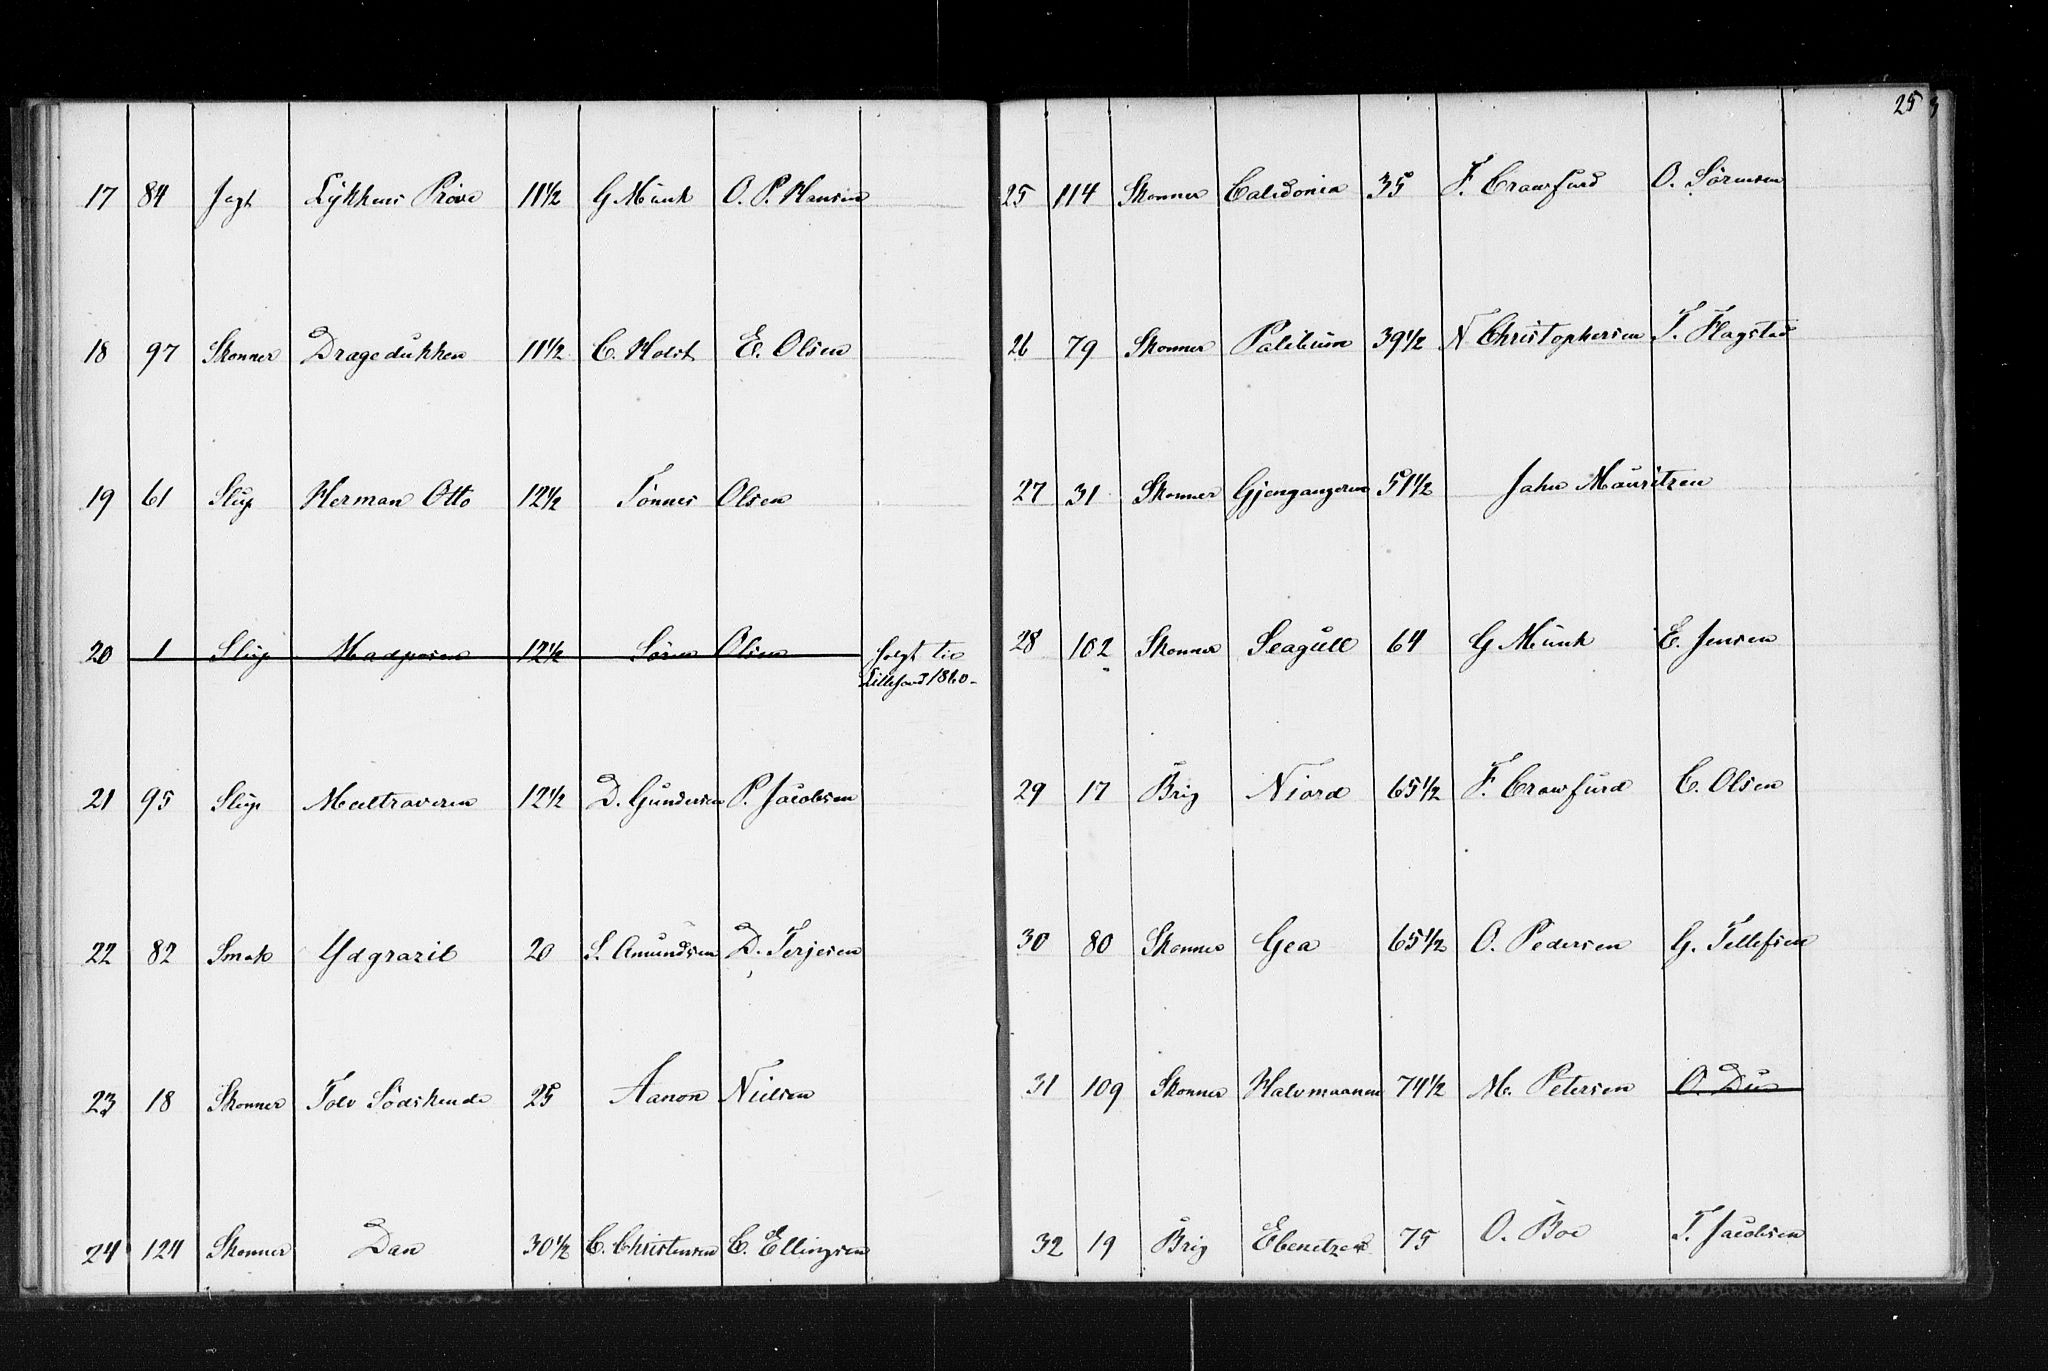 17 84 Jagt Lykkens Prøve 11½ G Münk O. P. Hansen
18 97 Skonner Dragedukken 11½ C. Holst E. Olsen
19 61 Slup Herman Otto 12½ Tønnes Olsen
20 1 Slup Madposen 12½ Søren Olsen solgt til
Lillesand 1860-
21 95 Slup Meeltraveren 12½ D. Gundersen P. Jacobsen
22 82 Smak Ydgrazil 20 S. Amundsen D. Terjesen
23 18 Skonner Tolv Sødskende 25 Aanon Nielsen
24 124 Skonner Dan 30½ C. Christensen C. Ellingsen
25
25 114 Skonner Calidonia 35 F. Crawfurd O. Sørensen
26 79 Skonner Palibüm 39½ N Christophersen T. Flagstad
27 31 Skonner Gjengangeren 51½ Jahn Mauritzen
28 102 Skonner Seagull 64 G Münk E. Jensen
29 17 Brig Niord 65½ F. Crawfurd C. Olsen
30 80 Skonner Gea 65½ O. Pedersen G. Tellefsen
31 109 Skonner Halvmaanen 74½ M. Petersen O. Due
32 19 Brig Ebenetzer 75 O. Boe T. Jacobsen